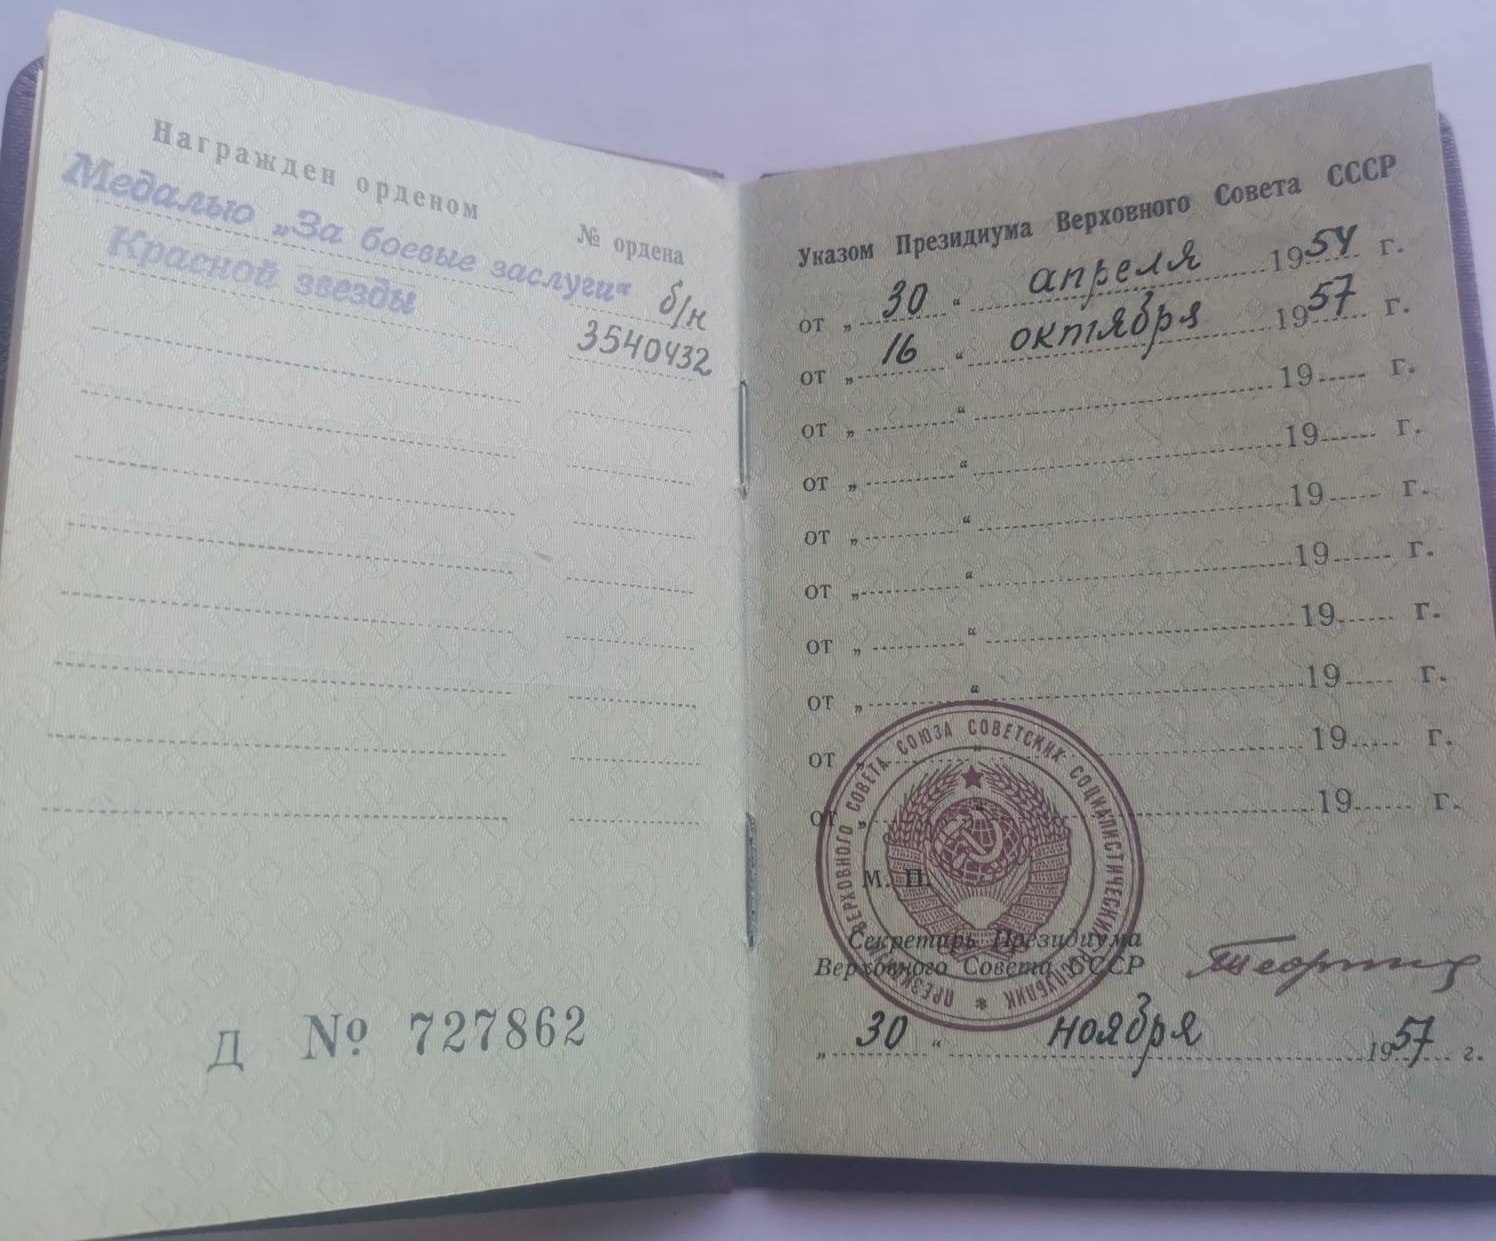 Награжден орденом
№ ордена
Медалью „За боевые заслуги“ б/н
Красной звезды 3540432
Д № 727862
Указом Президиума Верховного Совета СССР
от „ 30 “ апреля 1954 г.
от „ 16 “ октября 1957 г.
от „ “ 19 г.
от „ “ 19 г.
от „ “ 19 г.
от „ “ 19 г.
от „ “ 19 г.
от „ “ 19 г.
от „ “ 19 г.
от „ “ 19 г.
ПРЕЗИДИУМ ВЕРХОВНОГО СОВЕТА СОЮЗА СОВЕТСКИХ СОЦИАЛИСТИЧЕСКИХ РЕСПУБЛИК
М. П.
Секретарь Президиума
Верховного Совета СССР
„ 30 “ ноября 1957 г.